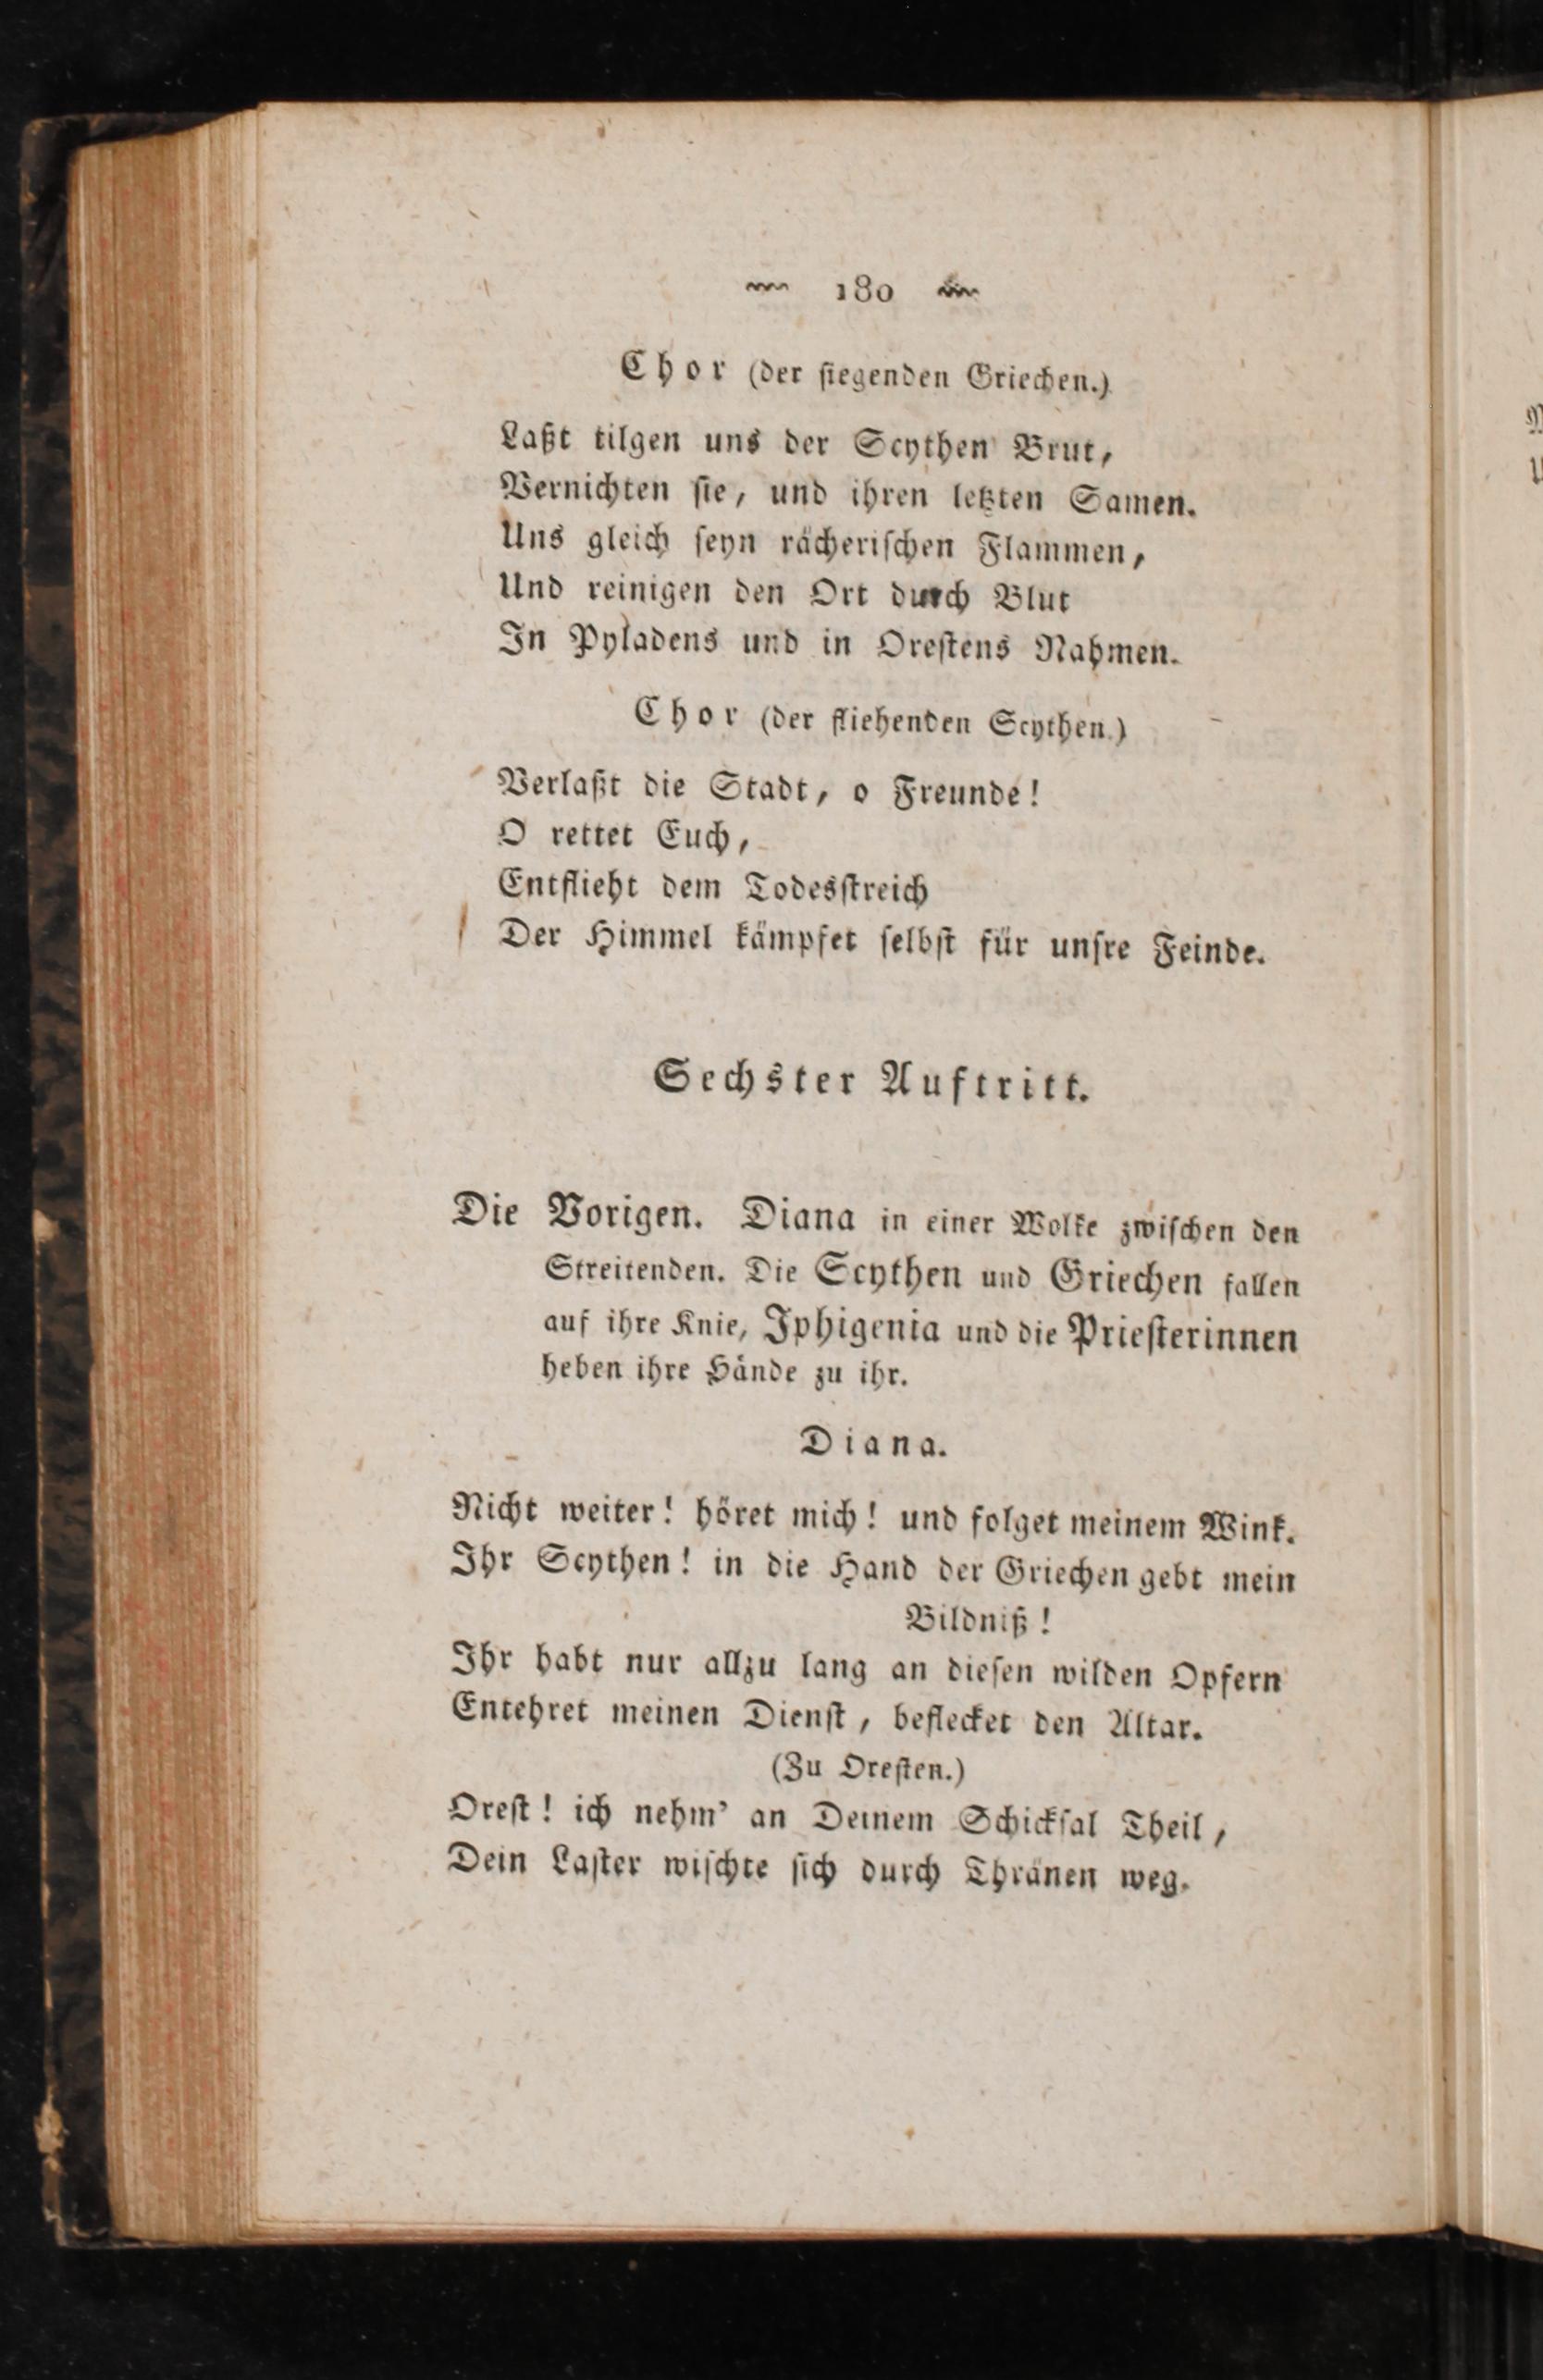 180
Chor (der siegenden Griechen.)
Laßt tilgen uns der Scythen Brut,
Vernichten sie, und ihren letzten Samen.
Uns gleich seyn rächerischen Flammen,
Und reinigen den Ort durch Blut
In Pyladens und in Orestens Nahmen.
Chor (der fliehenden Scythen.)
Verlaßt die Stadt, o Freunde!
O rettet Euch,
Entflieht dem Todesstreich
Der Himmel kämpfet selbst für unsre Feinde.
Sechster Auftritt.
Die Vorigen. Diana in einer Wolke zwischen den
Streitenden. Die Scythen und Griechen fallen
auf ihre Knie, Iphigenia und die Priesterinnen
heben ihre Hände zu ihr.
Diana.
Nicht weiter! höret mich! und folget meinem Wink.
Ihr Scythen! in die Hand der Griechen gebt mein
Bildniß!
Ihr habt nur allzu lang an diesen wilden Opfern
Entehret meinen Dienst, beflecket den Altar.
(Zu Oresten.)
Orest! ich nehm' an Deinem Schicksal Theil,
Dein Laster wischte sich durch Thränen weg.